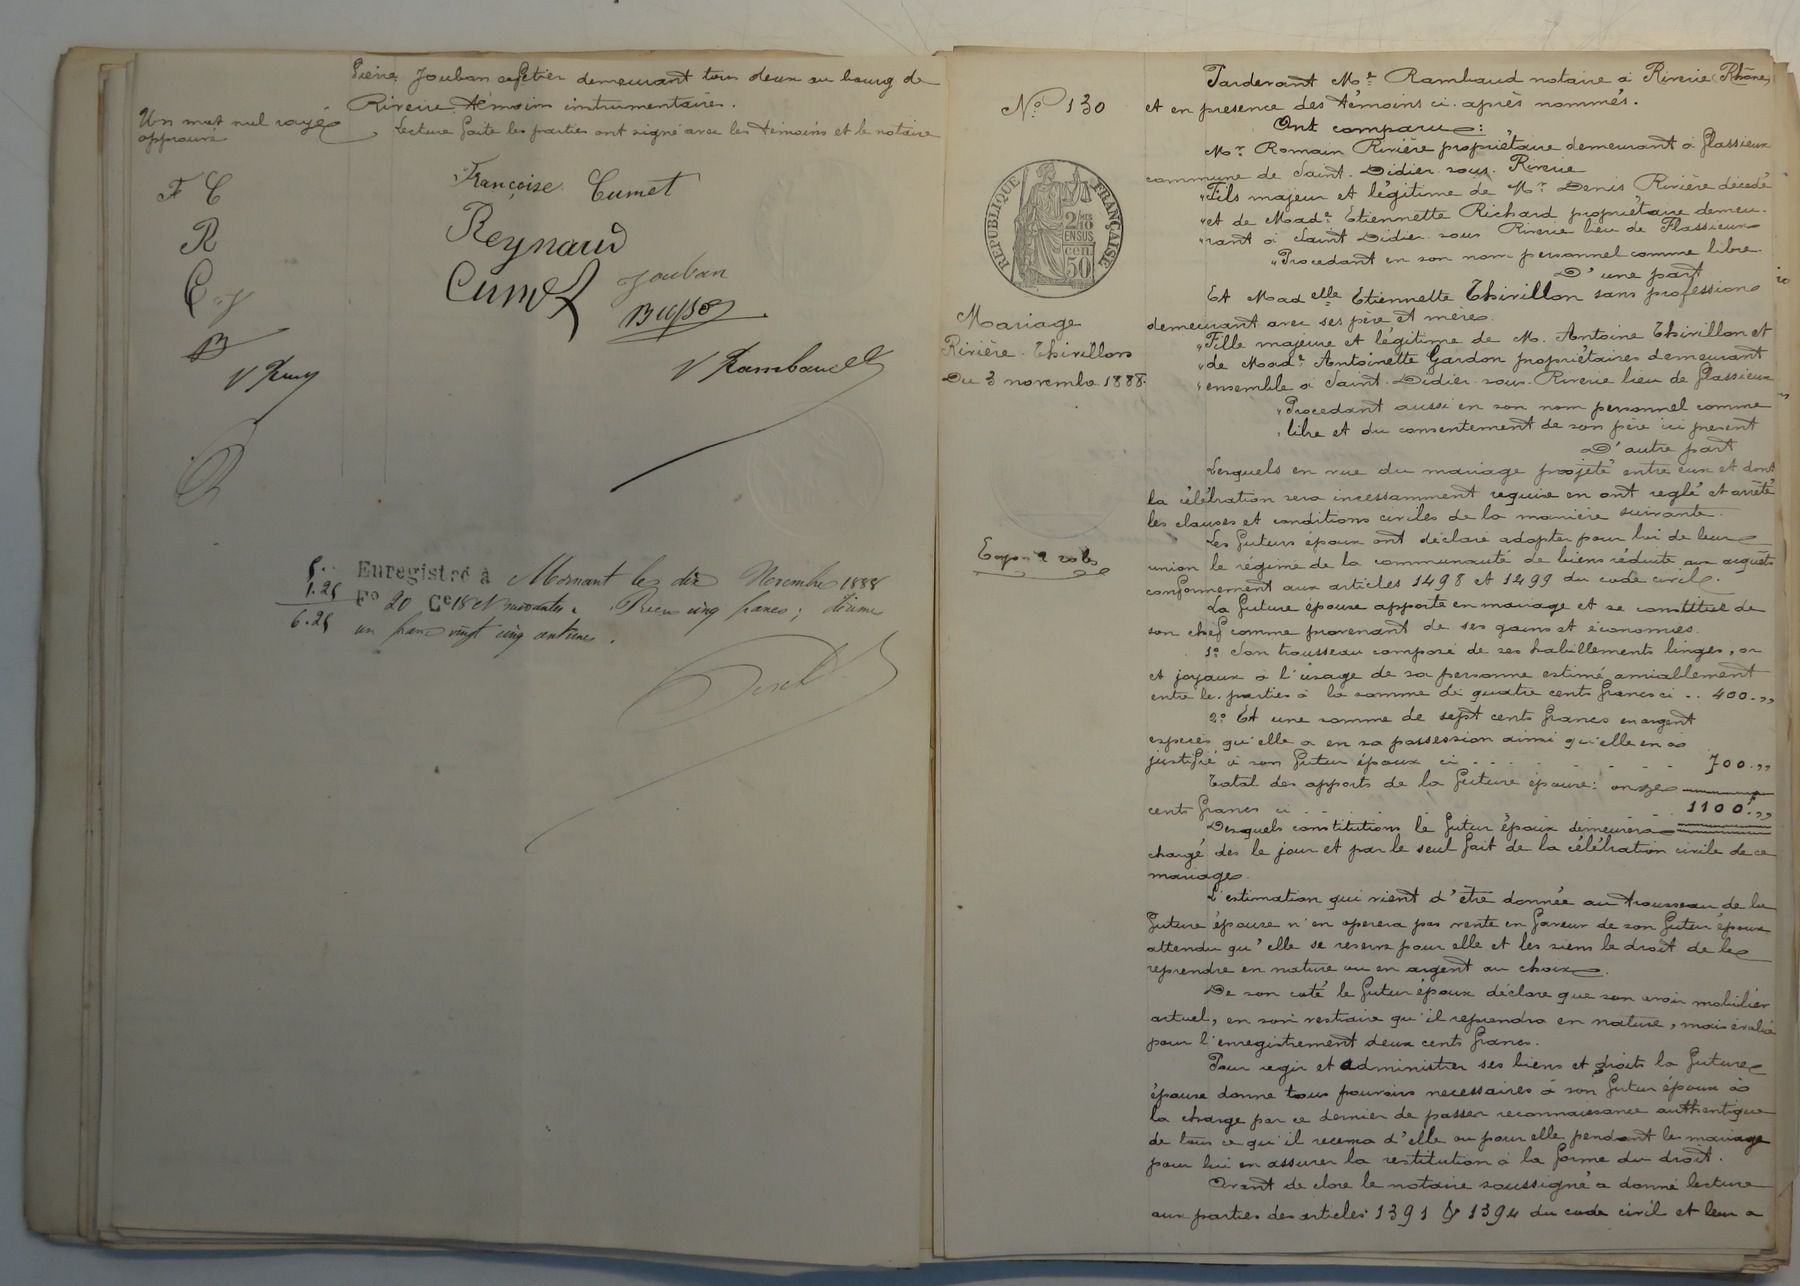 Pierre Jouban cafetier demeurant tous deux au bourg de
Riverie témoins instrumentaires.
Un mot nul rayé
approuvé
Lecture faite les parties ont signé avec les témoins et le notaire
F C
R
C
J
B
V
Françoise Cumet
Reynaud
Cumet
Jouban
V Rambaud
5..
1.25
6.25
Enregistré à Mornant le dix Novembre 1888
Fo 20 Ce 18 et suivantes. Reçu cinq francs; décime
un franc vingt cinq centimes.
No 130
REPUBLIQUE FRANÇAISE
2/10
EN SUS
50 cen
Mariage
Rivière - Thivillon
Du 3 novembre 1888
Pardevant Me Rambaud notaire à Riverie (Rhône)
et en présence des témoins ci-après nommés.
Ont comparu:
Mr Romain Rivière propriétaire demeurant à Flassieux
commune de Saint-Didier-sous-Riverie
"Fils majeur et légitime de Mr Denis Rivière décédé
"et de Made Etiennette Richard propriétaire demeu-
"rant à Saint Didier sous Riverie lieu de Flassieux
"Procédant en son nom personnel comme libre
D'une part
Et Madelle Etiennette Thivillon sans profession
demeurant avec ses père et mère.
"Fille majeure et légitime de M. Antoine Thivillon et
"de Made Antoinette Gardon propriétaires demeurant
"ensemble à Saint-Didier-sous-Riverie lieu de Flassieux
"Procédant aussi en son nom personnel comme
"libre et du consentement de son père ici présent
D'autre part
Lesquels en vue du mariage projeté entre eux et dont
la célébration sera incessamment requise en ont reglé et arrêté
les clauses et conditions civiles de la manière suivante.
Les futurs époux ont déclaré adopter pour loi de leur
union le régime de la communauté de biens réduite aux acquêts
conformement aux articles 1498 et 1499 du code civil.
La future épouse apporte en mariage et se constitue de
son chef comme provenant de ses gains et économies.
1o Son trousseau composé de ses habillements linges, or
et joyaux à l'usage de sa personne estimé amiablement
entre les parties à la somme de quatre cents francs ci .. 400.,,
2o Et une somme de sept cents francs en argent
espèces qu'elle a en sa possession ainsi qu'elle en a
justifié à son futur époux ci . . . . . . 700.,,
Total des apports de la future épouse: onze
cents francs ci . . . . . . 1100f.,,
Desquels constitutions le futur époux demeurera
chargé dès le jour et par le seul fait de la célébration civile de ce
mariage.
L'estimation qui vient d'être donnée au trousseau de la
future épouse n'en opérera pas vente en faveur de son futur époux
attendu qu'elle se reserve pour elle et les siens le droit de le
reprendre en nature ou en argent au choix.
De son coté le futur époux déclare que son avoir mobilier
actuel, en son vestiaire qu'il reprendra en nature, mais évalué
pour l'enregistrement deux cents francs.
Pour regir et administrer ses biens et droits la future
épouse donne tous pouvoirs necessaires à son futur époux à
la charge par ce dernier de passer reconnaissance authentique
de tous ce qu'il recevra d'elle ou pour elle pendant le mariage
pour lui en assurer la restitution à la forme du droit.
Avant de clore le notaire soussigné a donné lecture
aux parties des articles 1391 & 1394 du code civil et leur a